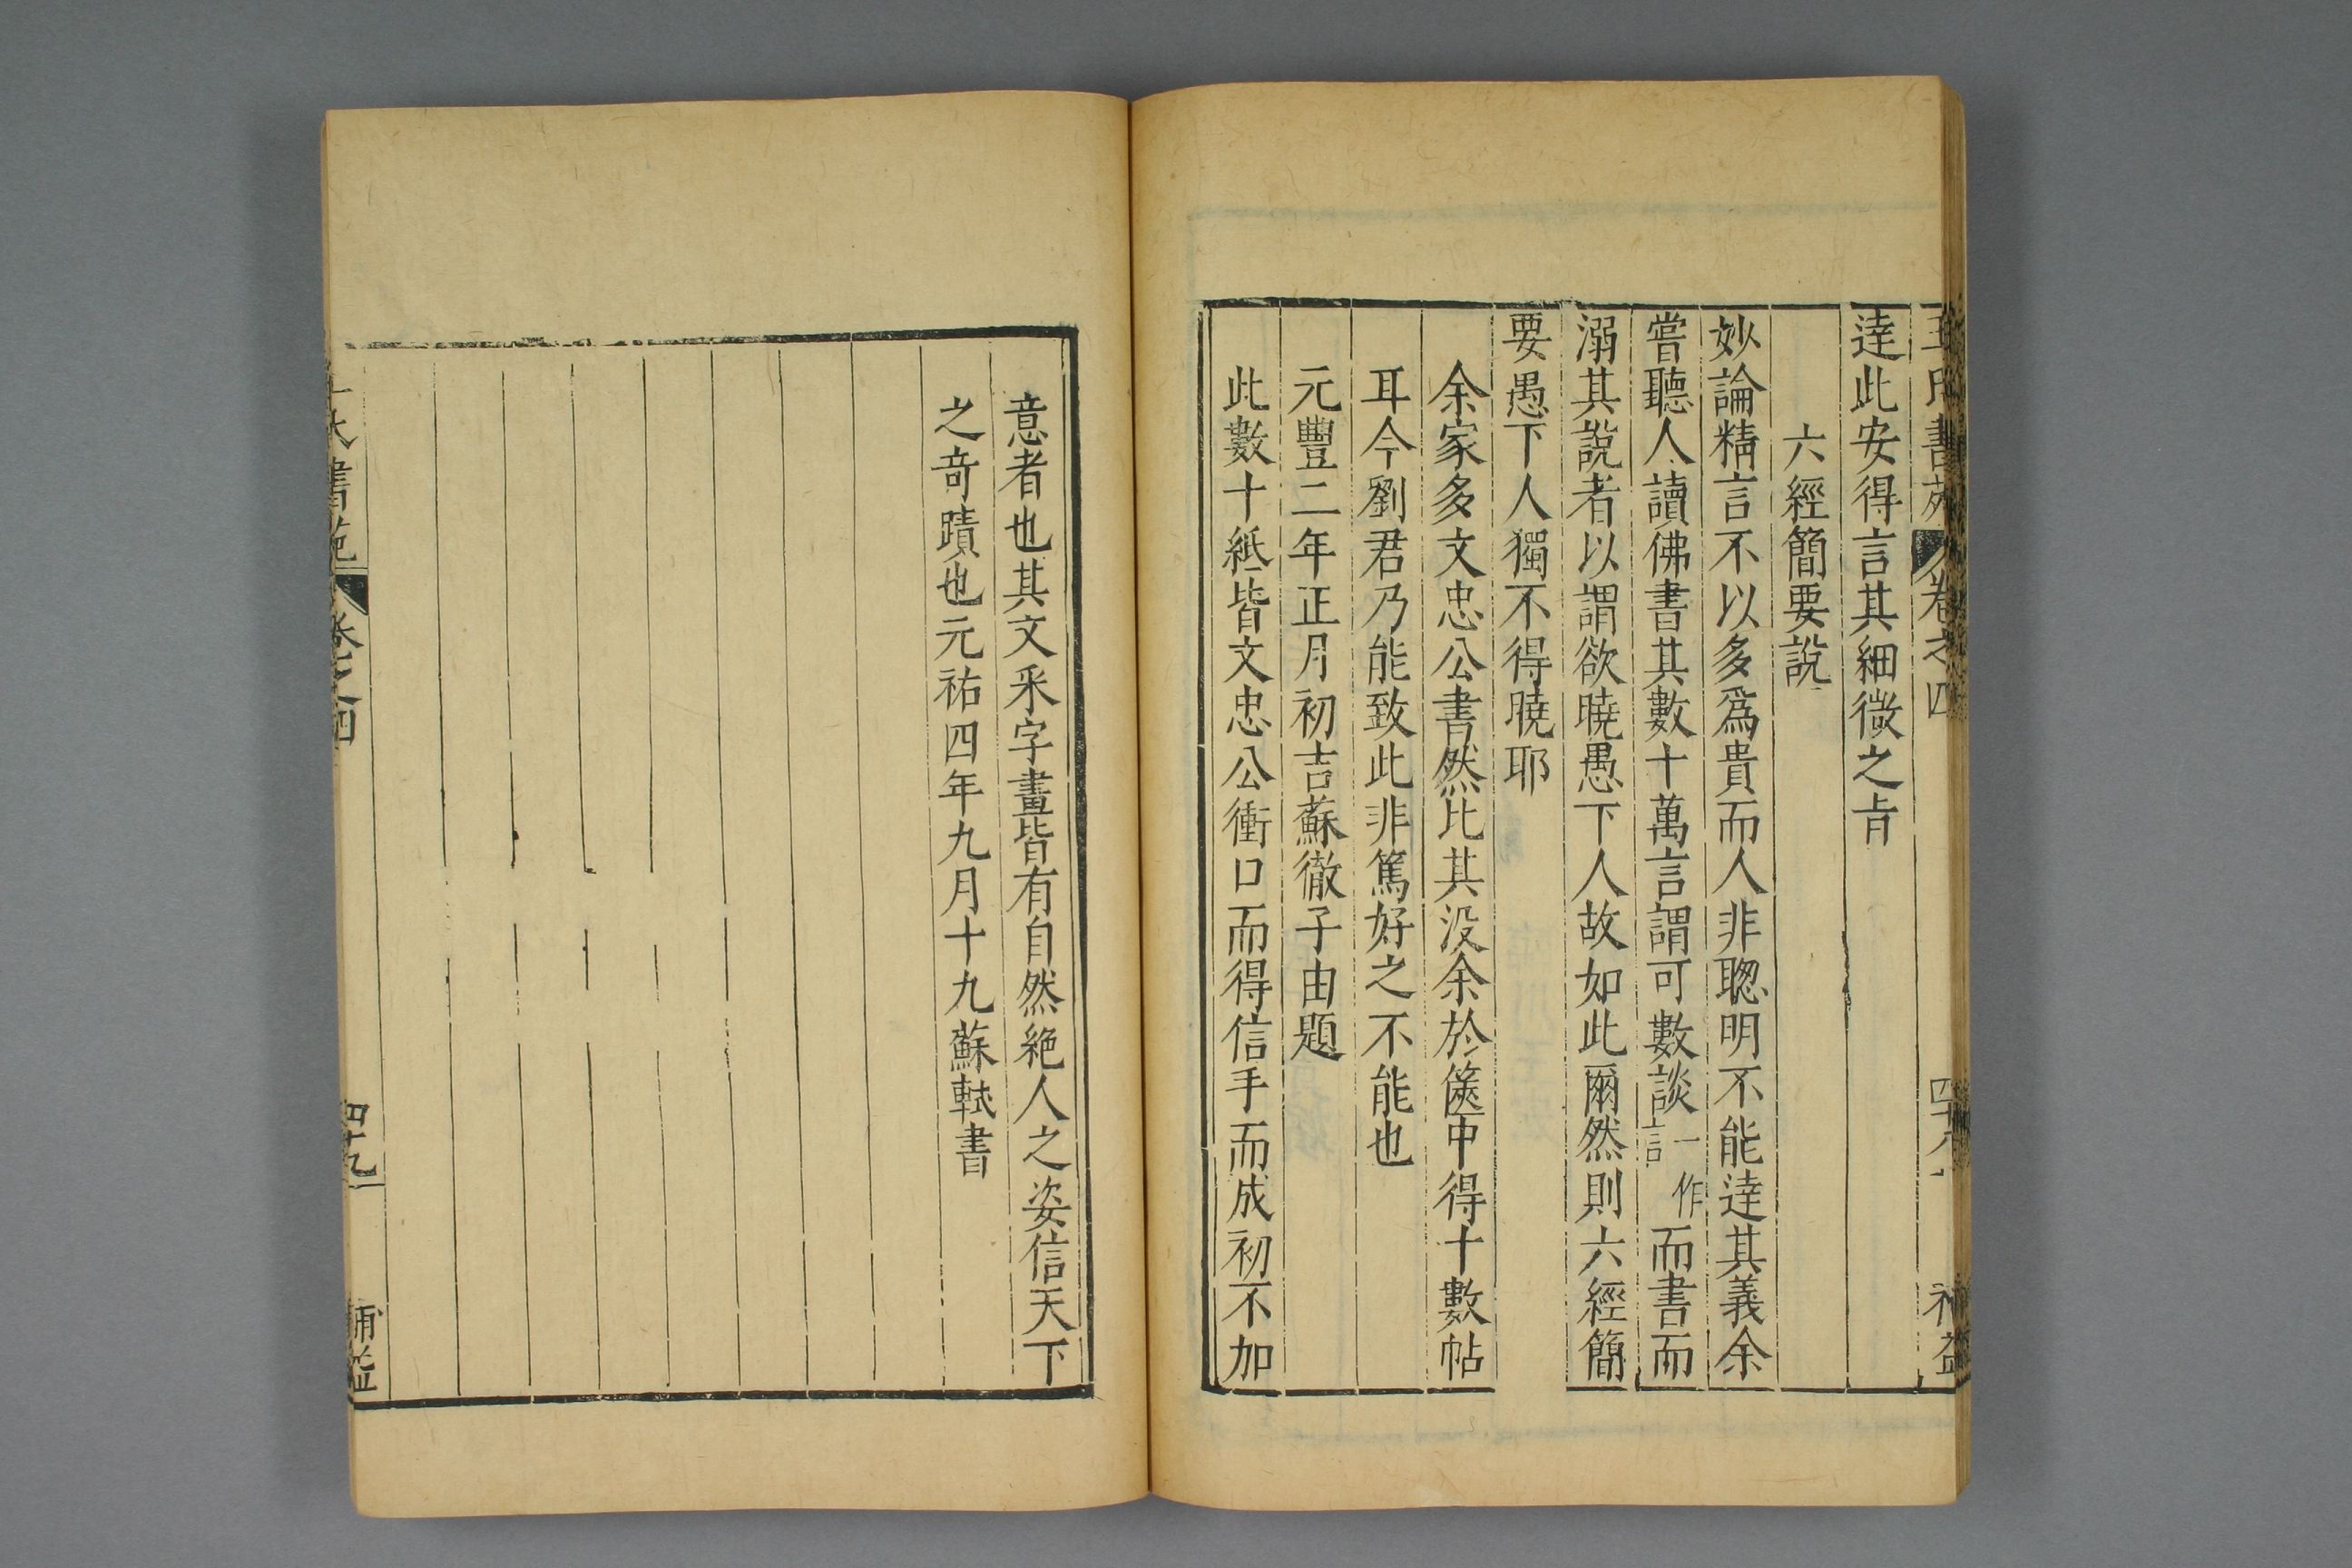 王氏書苑 卷之四 四十八 補益
達此安得言其細微之㫖
六經簡要說
妙論精言不以多爲貴而人非聰明不能達其義余
嘗聽人讀佛書其數十萬言謂可數談一作言而書而
溺其說者以謂欲曉愚下人故如此爾然則六經簡
要愚下人獨不得曉耶
余家多文忠公書然比其没余於篋中得十數帖
耳今劉君乃能致此非篤好之不能也
元豐二年正月初吉蘇徹子由題
此數十紙皆文忠公衝口而得信手而成初不加
意者也其文采字畫皆有自然絶人之姿信天下
之奇蹟也元祐四年九月十九蘇軾書
王氏書苑 卷之四 四十九 補益